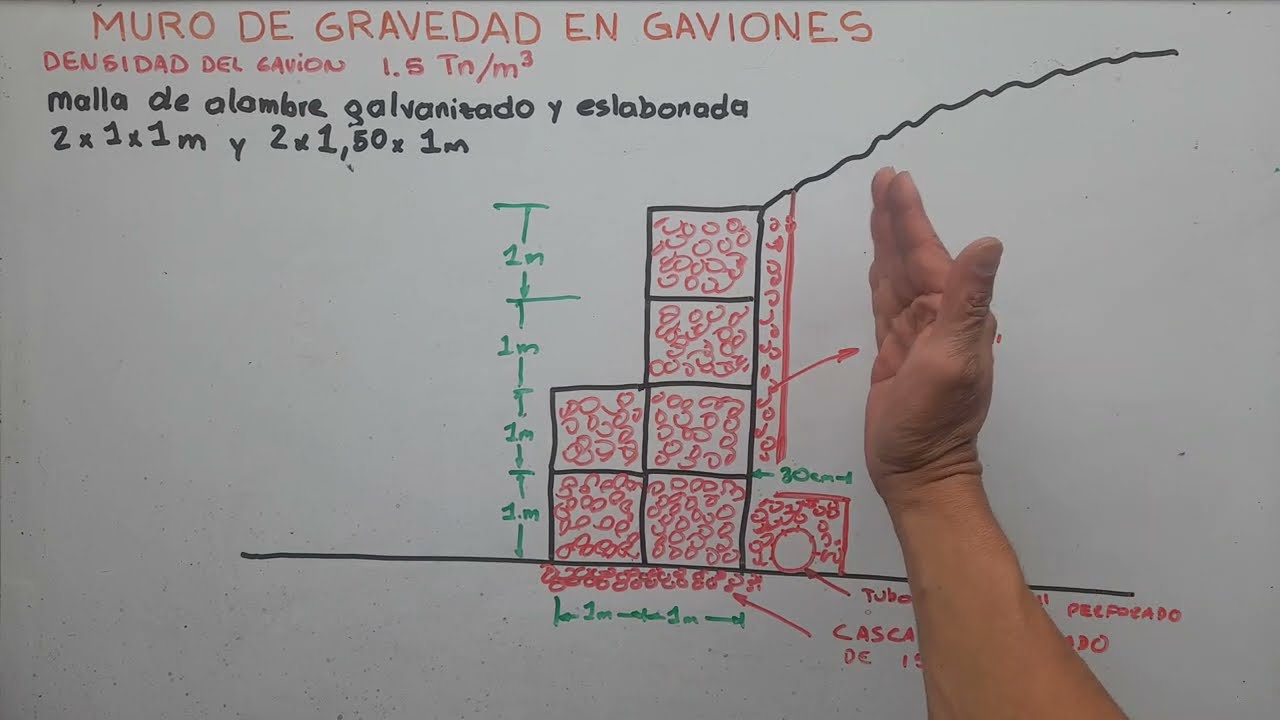 MURO DE GRAVEDAD EN GAVIONES
DENSIDAD DEL GAVION 1.5 Tn/m³
malla de alambre galvanizado y eslabonada
2 x 1 x 1 m y 2 x 1,50 x 1m
1m
1m
1m
30cm
1.m
1m 1m
PERFORADO
DE